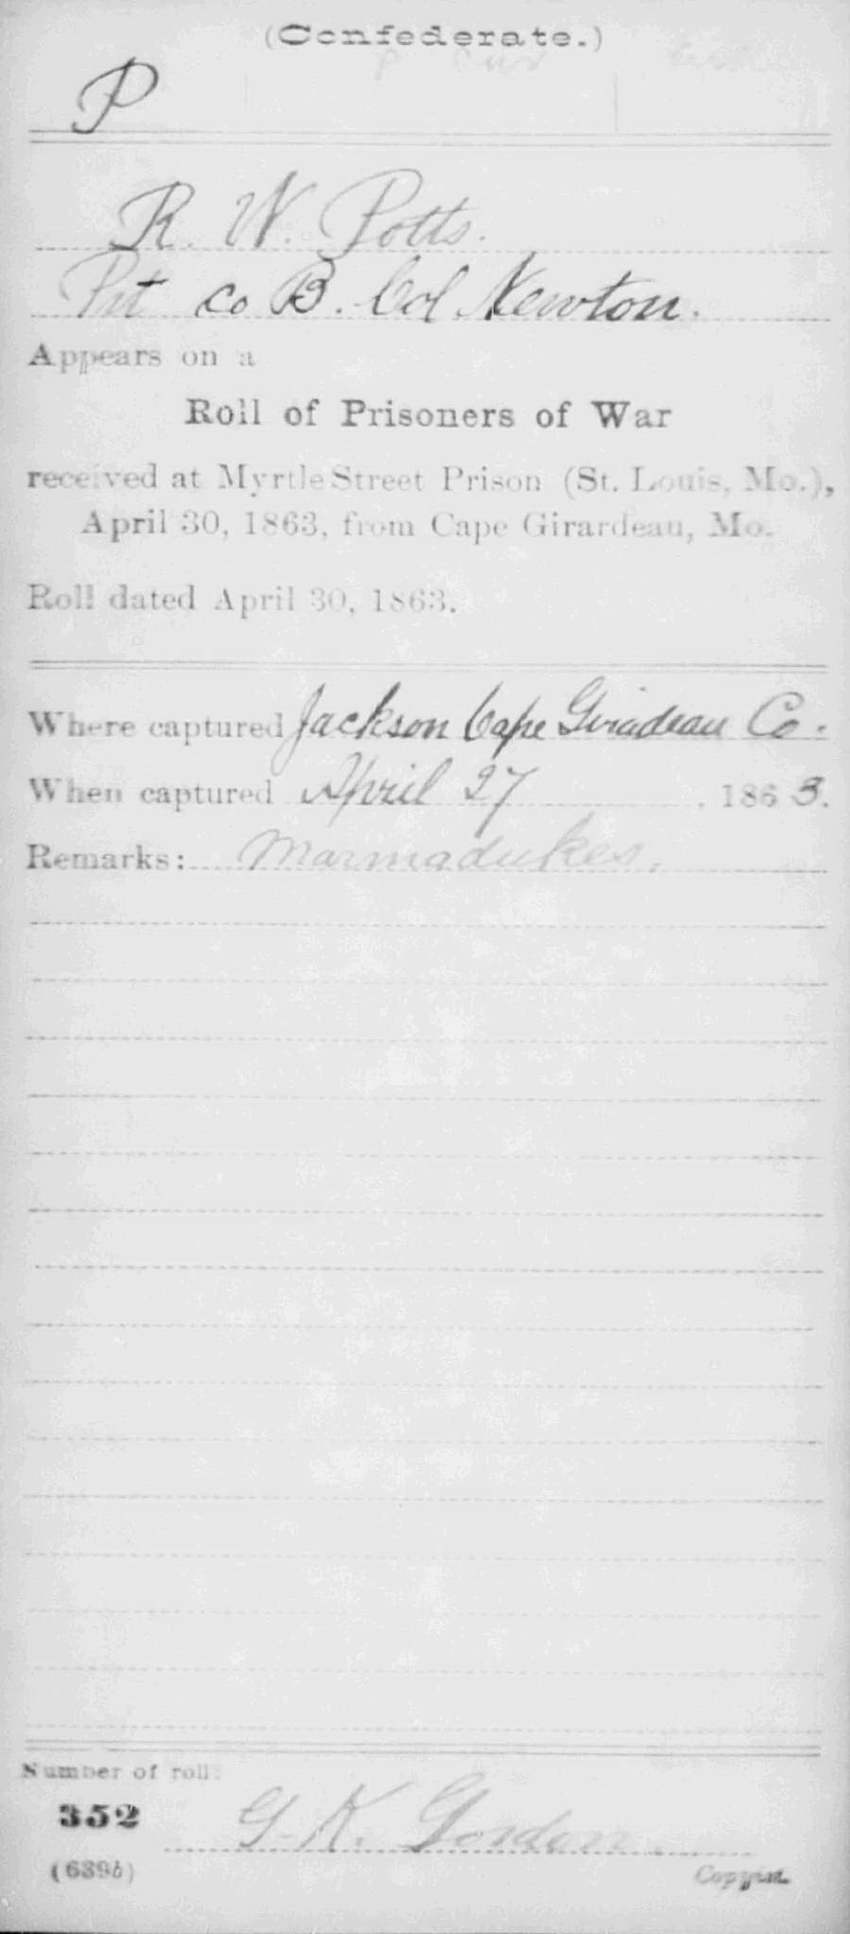 (Confederate.)
P
R. W. Potts.
Pvt Co B. Col. Newton.
Appears on a
Roll of Prisoners of War
received at Myrtle Street Prison (St. Louis, Mo.),
April 30, 1863, from Cape Girardeau, Mo.
Roll dated April 30, 1863.
Where captured Jackson Cape Giradeau Co.
When captured April 27, 1863.
Remarks: Marmadukes.
Number of roll:
352
G. K. Gordon.
(639b)
Copyist.